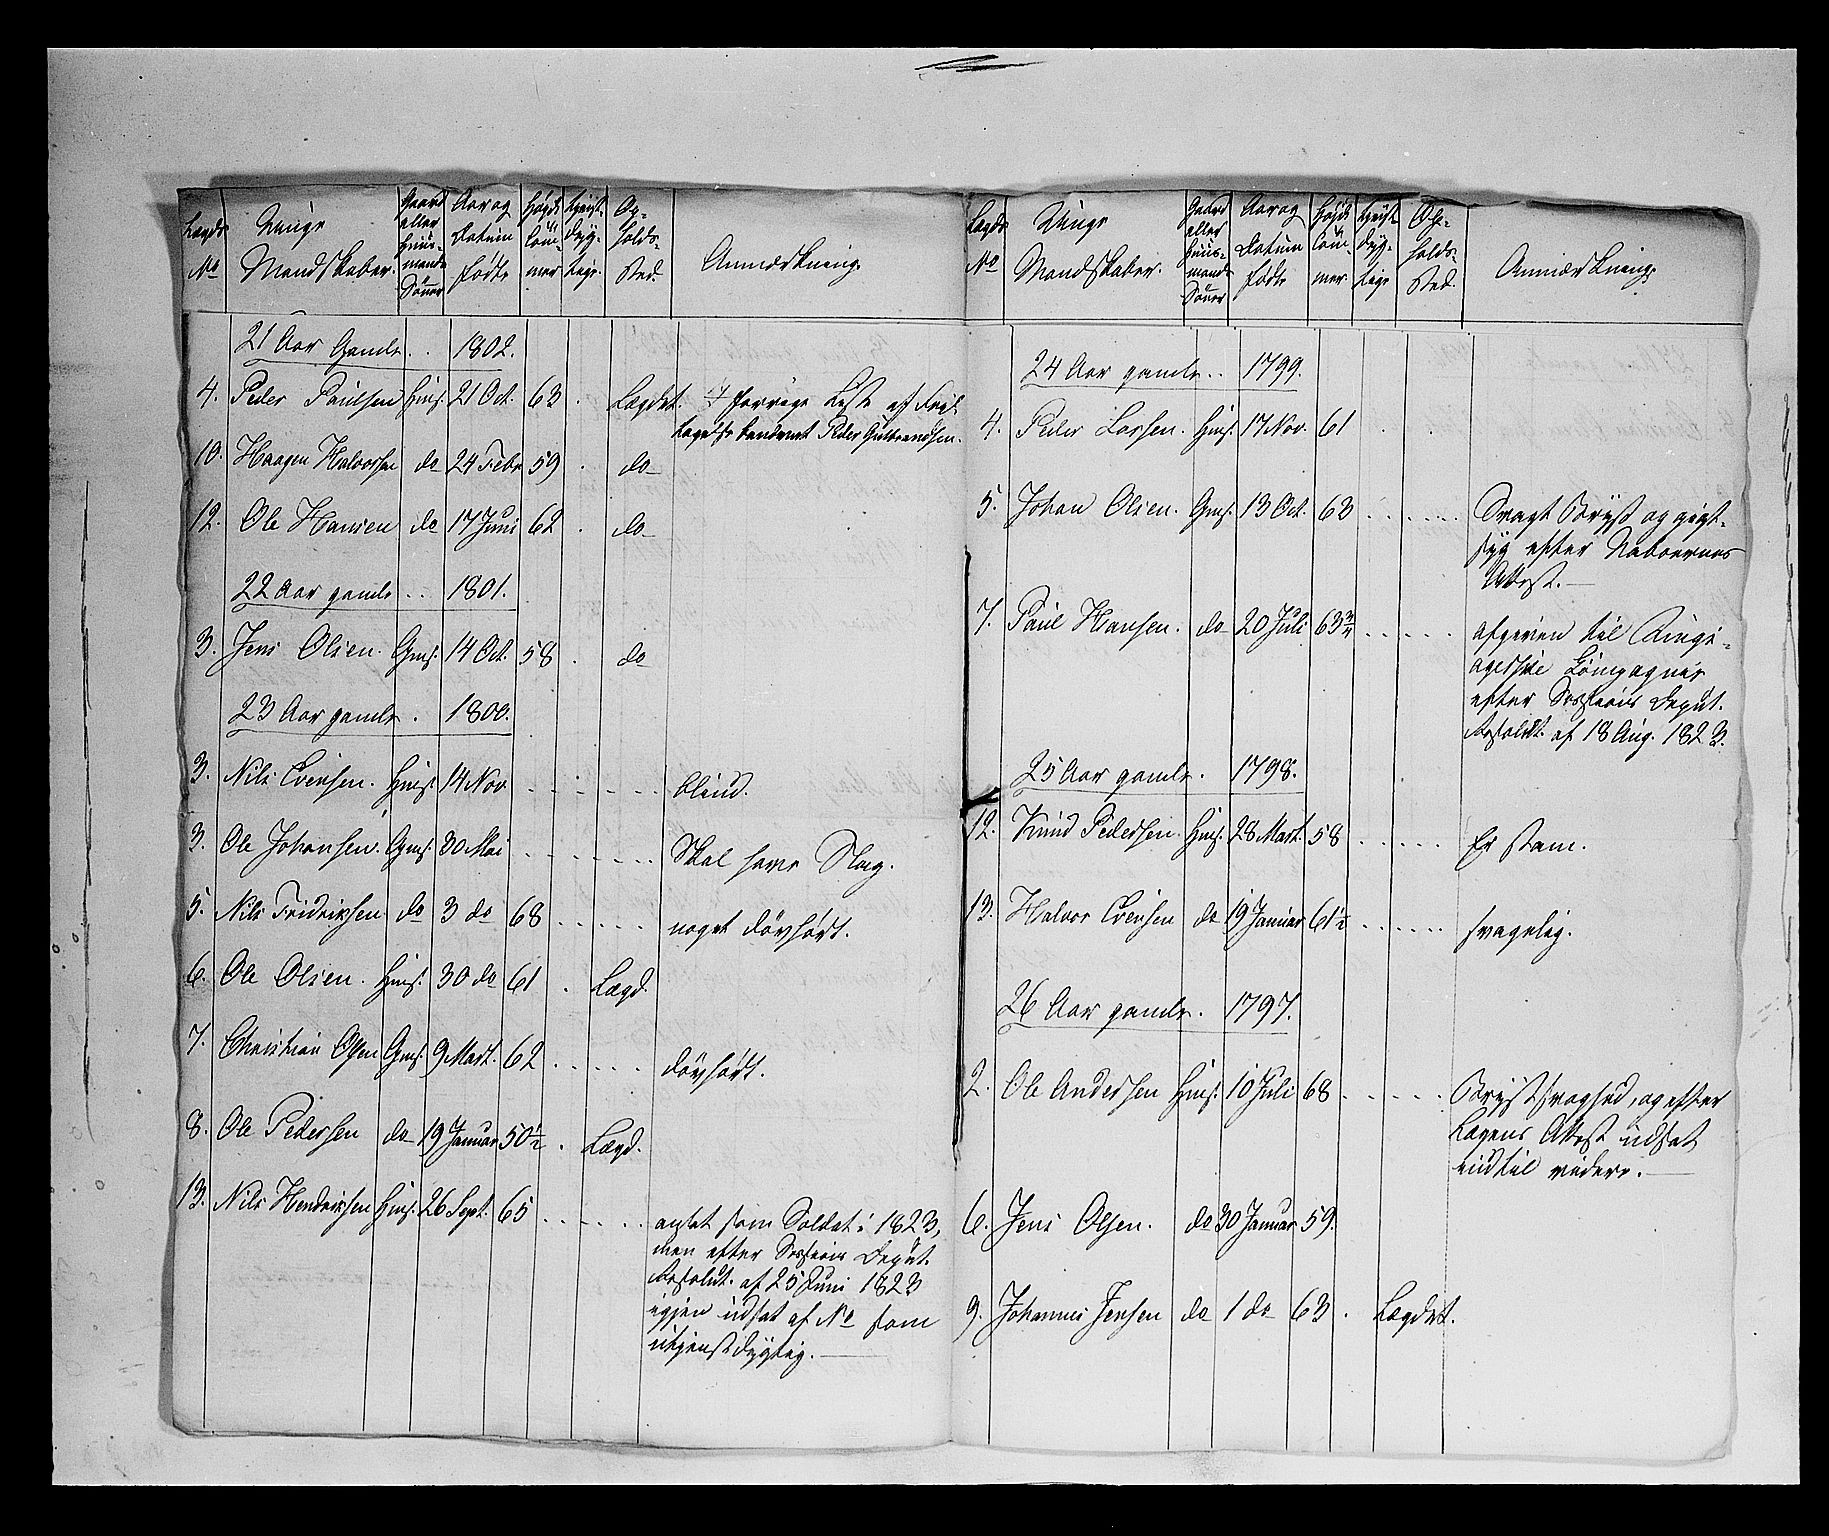 Lægds No | Unge Mandskaber. | Gaard eller Huus-mands Sönner | Aar og Datum födte | Høyde Tom-mer | tienst-dyg-tige. | Op-holds-Sted. | Anmærkning.
21 Aar Gamle . . 1802.
4. Peder Paulsen Hms. 21 Oct. 63 . Lægdet. forrige Liste af Feil
tagelse benævnt Peder Gulbrandsen.
10. Haagen Halvorsen do 24 Febr 59 . do
12. Ole Hansen do 17 Juni 62 . do
22 Aar gamle . . 1801.
3. Jens Olsen. Gms. 14 Oct. 58 . do
23 Aar gamle . 1800.
3. Nils Evensen. Hms. 14 Nov . . . . . . blind.
3. Ole Johansen. Gms. 30 Mai . . . . . . Skal have Slag.
5. Nils Fridriksen do 3 do 68 . . . . . noget dövhört.
6. Ole Olsen. Hms. 30 do 61 . Lægd.
7. Christian Olsen Gms. 9 Mart. 62 . . . . . dövhört.
8. Ole Pedersen do 19 Januar 50½ . Lægd.
13. Nils Hendriksen Hms. 26 Sept. 65 . . . . . ansat som Soldat i 1823,
men efter Sessions Deput.
Resolut. af 25 Juni 1823
igjen udsat af No som
utjenstdygtig.
Lægds No | Unge Mandskaber. | Gaard eller Huus-mands Sönner | Aar og Datum födte | Høyde Tom-mer. | tienst-dyg-tige | Op-holds-Sted. | Anmærkning.
24 Aar gamle . . 1799.
4. Peder Larsen. Hms. 17 Nov. 61 .
5. Johan Olsen. Gms. 13 Oct. 63 . . . . . Svagt Bryst og gigt-
syg efter Naboernes
Attest.
7. Paul Hansen. do 20 Juli 63¾ . . . . . afgiven til Rings-
agerske Compagnie
efter Sessions Deput.
Resolut. af 18 Aug. 1823.
25 Aar gamle . 1798.
12. Knud Pedersen. Hms. 28 Mart. 58 . . . . . Er stam.
13. Halvor Evensen do 19 Januar 61½ . . . . . svagelig.
26 Aar gamle . 1797.
2. Ole Andersen Hms. 10 Juli 68 . . . . . Brystsvaghed, og efter
Lægens Attest udsat
indtil videre.
6. Jens Olsen. do 30 Januar 59.
9. Johannes Jensen do 1 do 63 . Lægdet.